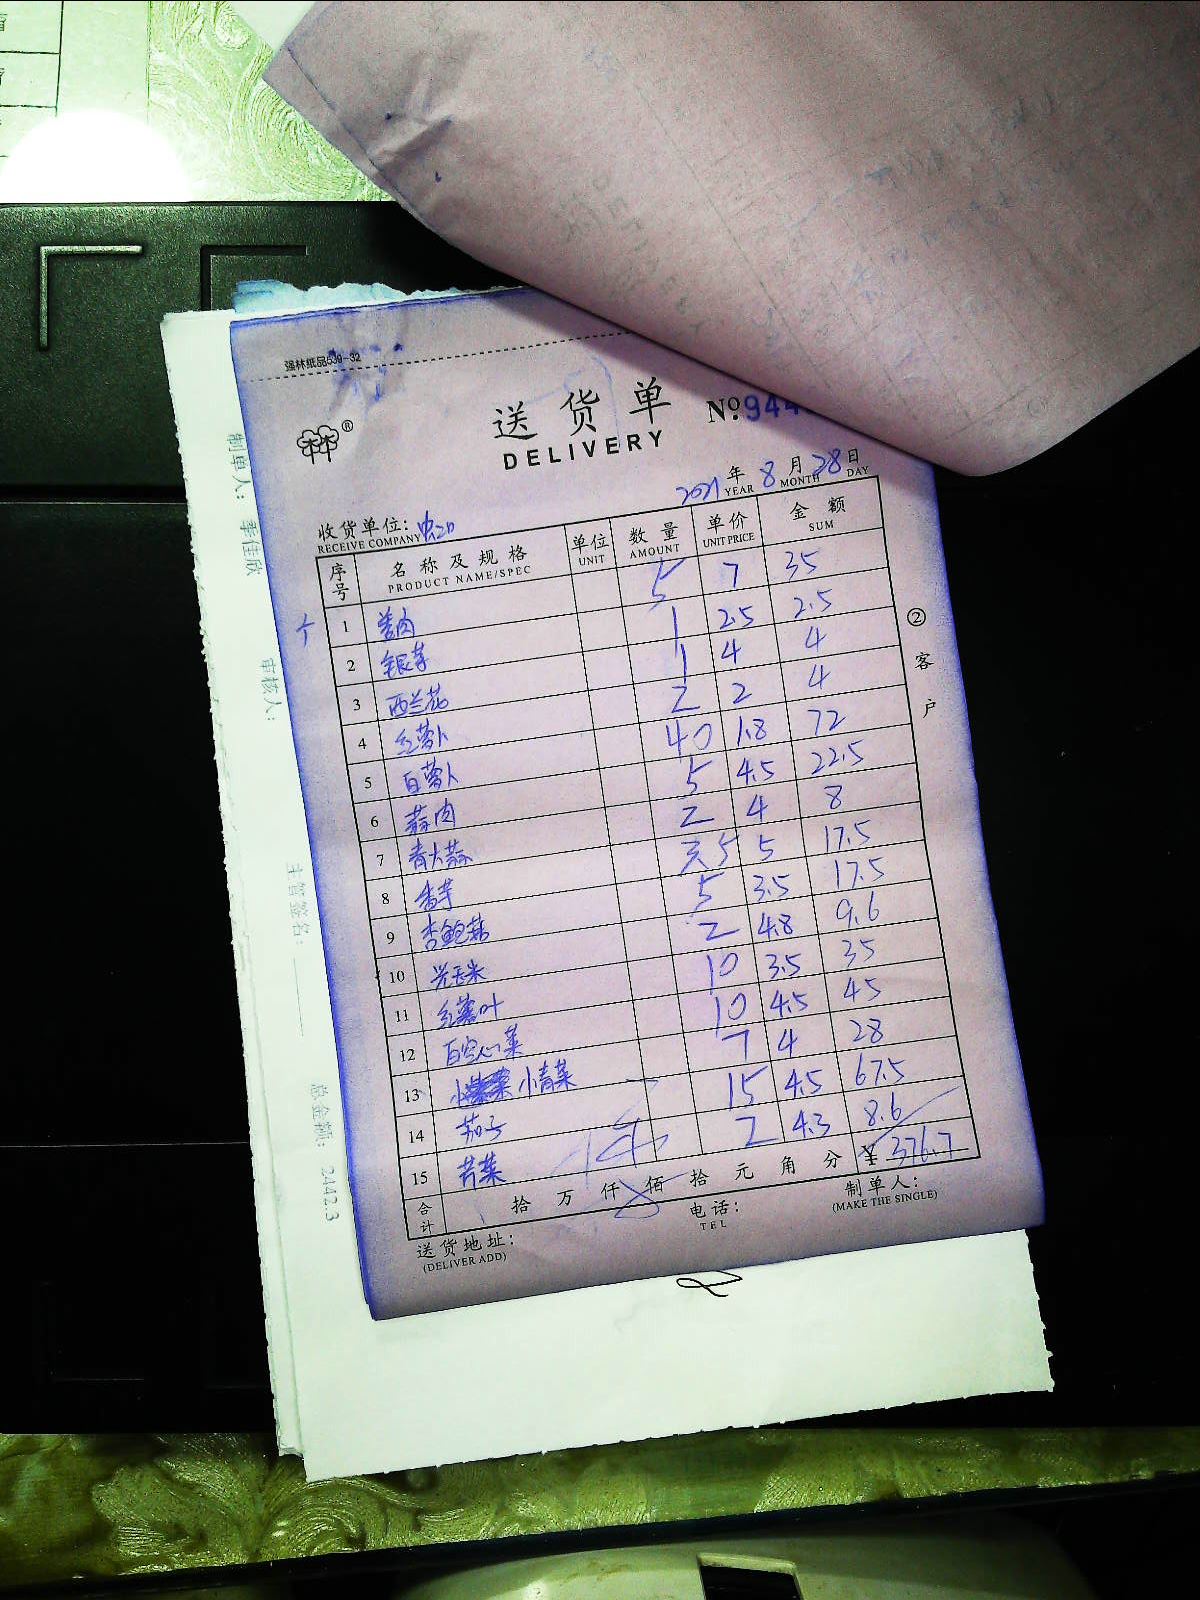 强林纸品539-32
送货单 No.944
DELIVERY
2021年 8月 28日
YEAR MONTH DAY
收货单位:
RECEIVE COMPANY
序号 名称及规格 单位 数量 单价 金额
PRODUCT NAME/SPEC UNIT AMOUNT UNIT PRICE SUM
1 姜肉 5 7 35
2 银芽 1 2.5 2.5
3 西兰花 1 4 4
4 红萝卜 2 2 4
5 白萝卜 40 1.8 72
6 蒜肉 5 4.5 22.5
7 青大蒜 2 4 8
8 香芋 3.5 5 17.5
9 杏鲍菇 5 3.5 17.5
10 光玉米 2 4.8 9.6
11 红薯叶 10 3.5 35
12 白空心菜 10 4.5 45
13 小青菜 7 4 28
14 茄子 15 4.5 67.5
15 芥菜 2 4.3 8.6
合计 拾 万 仟 佰 拾 元 角 分 ¥ 376.7
送货地址: 电话: 制单人:
(DELIVER ADD) TEL (MAKE THE SINGLE)
② 客户
制单人: 李佳欣
审核人:
主管签名:
总金额: 2442.3